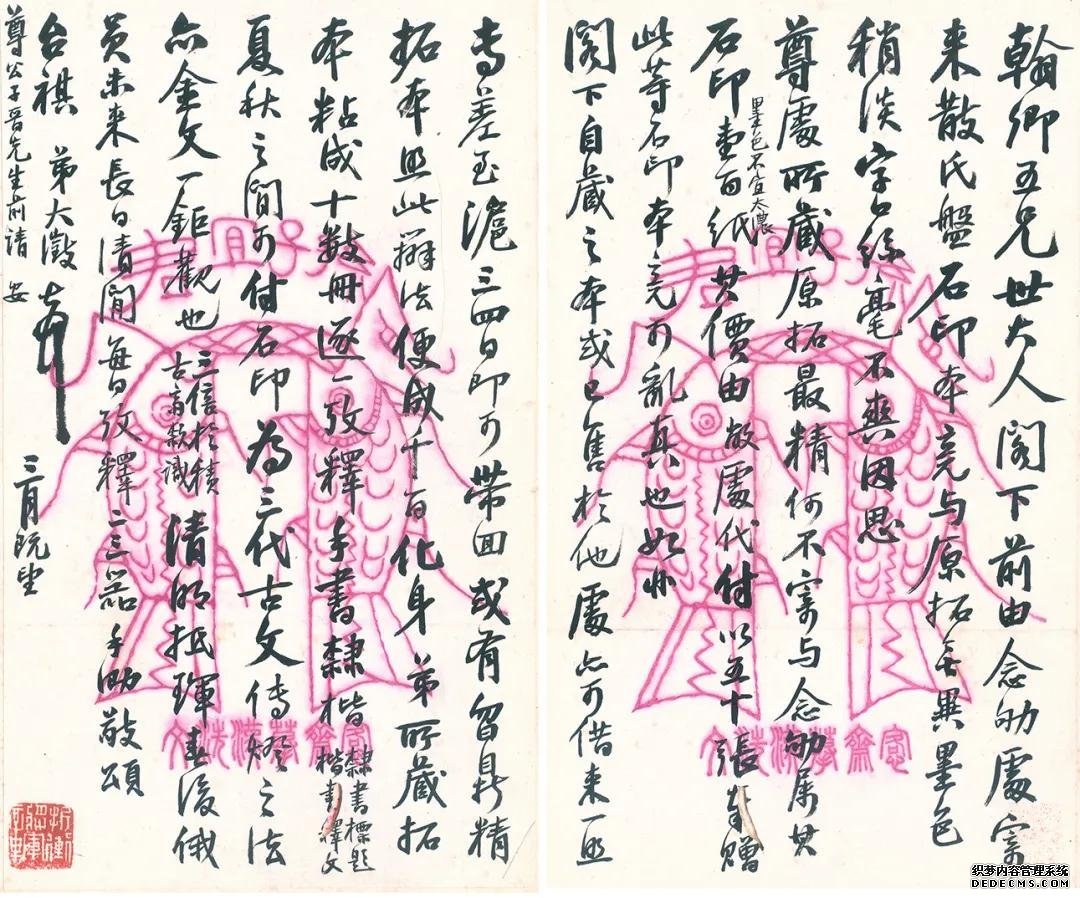 翰卿五兄世大人閣下前由念劬處寄
来散氏盤石印本竞与原拓無異墨色
稍淡字絲毫不爽因思
尊處所藏原拓最精何不寄与念劬属其
石印壹百纸其價由敝處代付以五十張奉贈
墨色不宜太濃
此等石印本竟可亂真也如
閣下自藏之本或已售於他處亦可借来一
專差至滬三四日即可带回或有留鼎精
拓本照此辦法便成千百化身弟所藏拓
本粘成十數冊逐一攷釋手書隸楷
隸書標題
楷書釋文
夏秋之間可付石印為三代古文傳燈之法
亦金文一鉅觀也
三倍於積
古齋款識
清明抵琿春後俄
員未来長日清閒每日攷釋二三器手此敬頌
台祺 弟大澂
三月既望
尊公子晋先生前請安
愙齋摹漢洗文
織梦内容管理系统
DEDECMS.COM